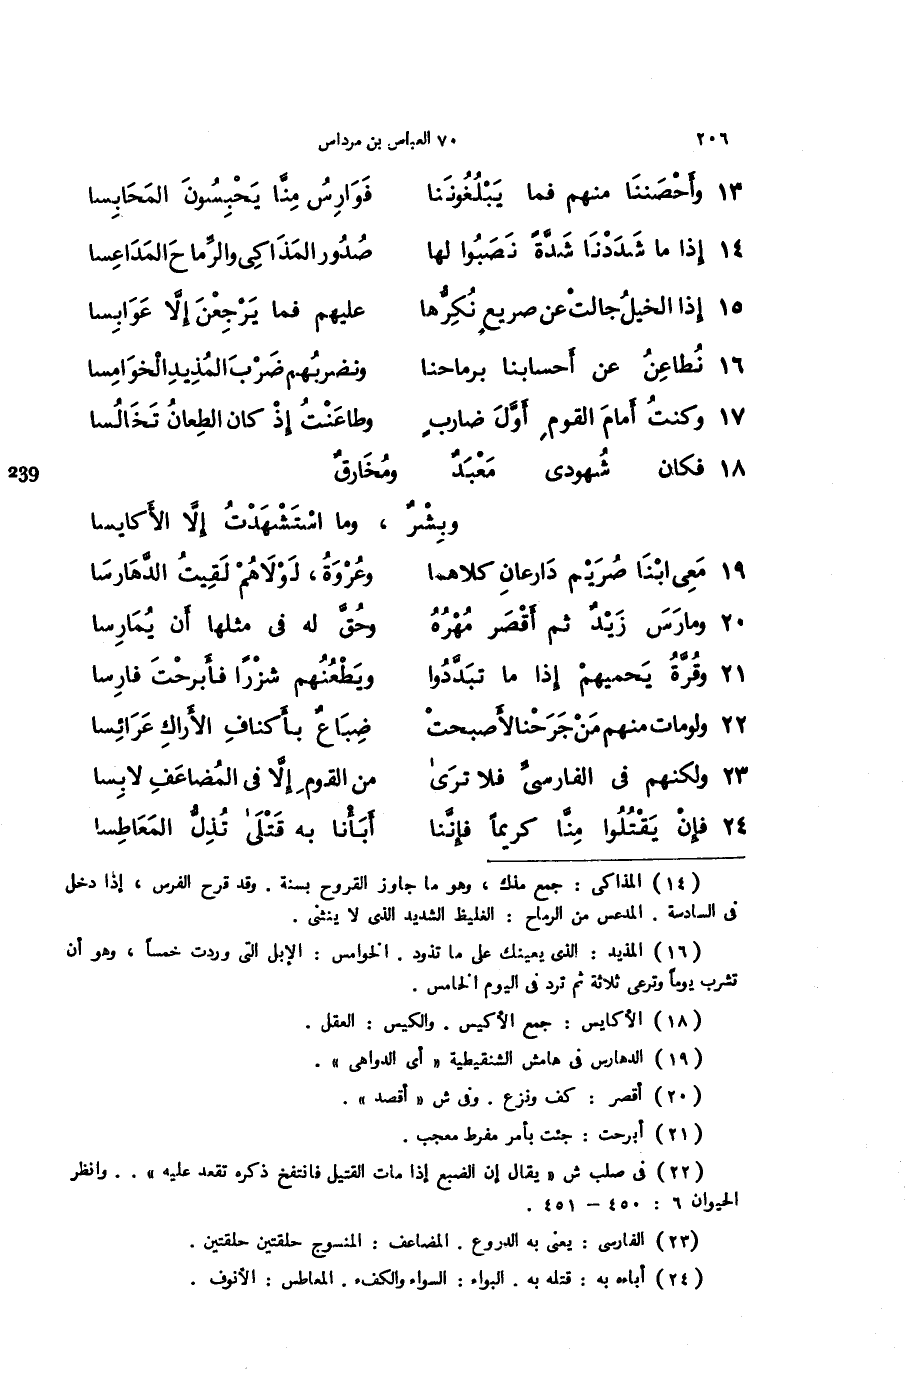 ٢٠٦ ٧٠ العباس بن مرداس
١٣ وأَحْصَننَا منهم فما يَبْلُغُونَنا فَوَارِسُ مِنَّا يَحْبِسُونَ المَحَابِسا
١٤ إذا ما شَدَدْنَا شَدَّةً نَصَبُوا لها صُدُور المَذَاكِى والرِّماحَ المَدَاعِسا
١٥ إذا الخيلُ جالتْ عن صريعٍ نُكِرُّها عليهم فما يَرْجِعْنَ إلَّا عَوَابِسا
١٦ نُطاعِنُ عن أحسابنا برماحنا ونضربُهم ضَرْبَ المُذِيدِ الْخوَامِسا
١٧ وكنتُ أمامَ القومِ أوَّلَ ضاربٍ وطاعَنْتُ إذْ كان الطِعانُ تَخَالُسا
١٨ فكان شُهودى مَعْبَدٌ ومُخَارقٌ
239
وبِشْرٌ ، وما اسْتَشْهَدْتُ إلَّا الأَكايِسا
١٩ مَعِى ابْنَا صُرَيْمٍ دَارعانِ كلاهما وعُرْوَةُ ، لَوْلَاهُمْ لَقِيتُ الدَّهَارسَا
٢٠ ومارَسَ زَيْدٌ ثم أَقْصَر مُهْرُهُ وحُقَّ له فى مثلها أن يُمَارِسا
٢١ وقُرَّةُ يَحميهمْ إذا ما تبَدَّدُوا ويَطْعُنُهم شزْرًا فأَبرحْتَ فارِسا
٢٢ ولو مات منهم مَنْ جَرَحْنا لأَصبحتْ ضِبَاعٌ بأَكنافِ الأَراكِ عَرَائِسا
٢٣ ولكنهم فى الفارسىِّ فلا ترَىٰ من القومِ إلَّا فى المُضاعَفِ لابِسا
٢٤ فإنْ يَقْتُلُوا مِنَّا كريماً فإنَّنا أَبَأْنا به قَتْلَىٰ تُذِلُّ المَعَاطِسا
(١٤) المذاكى : جمع مذك ، وهو ما جاوز القروح بسنة . وقد قرح الفرس ، إذا دخل
فى السادسة . المدعس من الرماح : الغليظ الشديد الذى لا ينثنى .
(١٦) المذيد : الذى يعينك على ما تذود . الخوامس : الإبل التى وردت خمساً ، وهو أن
تشرب يوماً وترعى ثلاثة ثم ترد فى اليوم الخامس .
(١٨) الأكايس : جمع الأكيس . والكيس : العقل .
(١٩) الدهارس فى هامش الشنقيطية « أى الدواهى » .
(٢٠) أقصر : كف ونزع . وفى ش « أقصد » .
(٢١) أبرحت : جئت بأمر مفرط معجب .
(٢٢) فى صلب ش « يقال إن الضبع إذا مات القتيل فانتفخ ذكره تقعد عليه » . . وانظر
الحيوان ٦ : ٤٥٠ – ٤٥١ .
(٢٣) الفارسى : يعنى به الدروع . المضاعف : المنسوج حلقتين حلقتين .
(٢٤) أباءه به : قتله به . البواء : السواء والكفء . المعاطس : الأنوف .